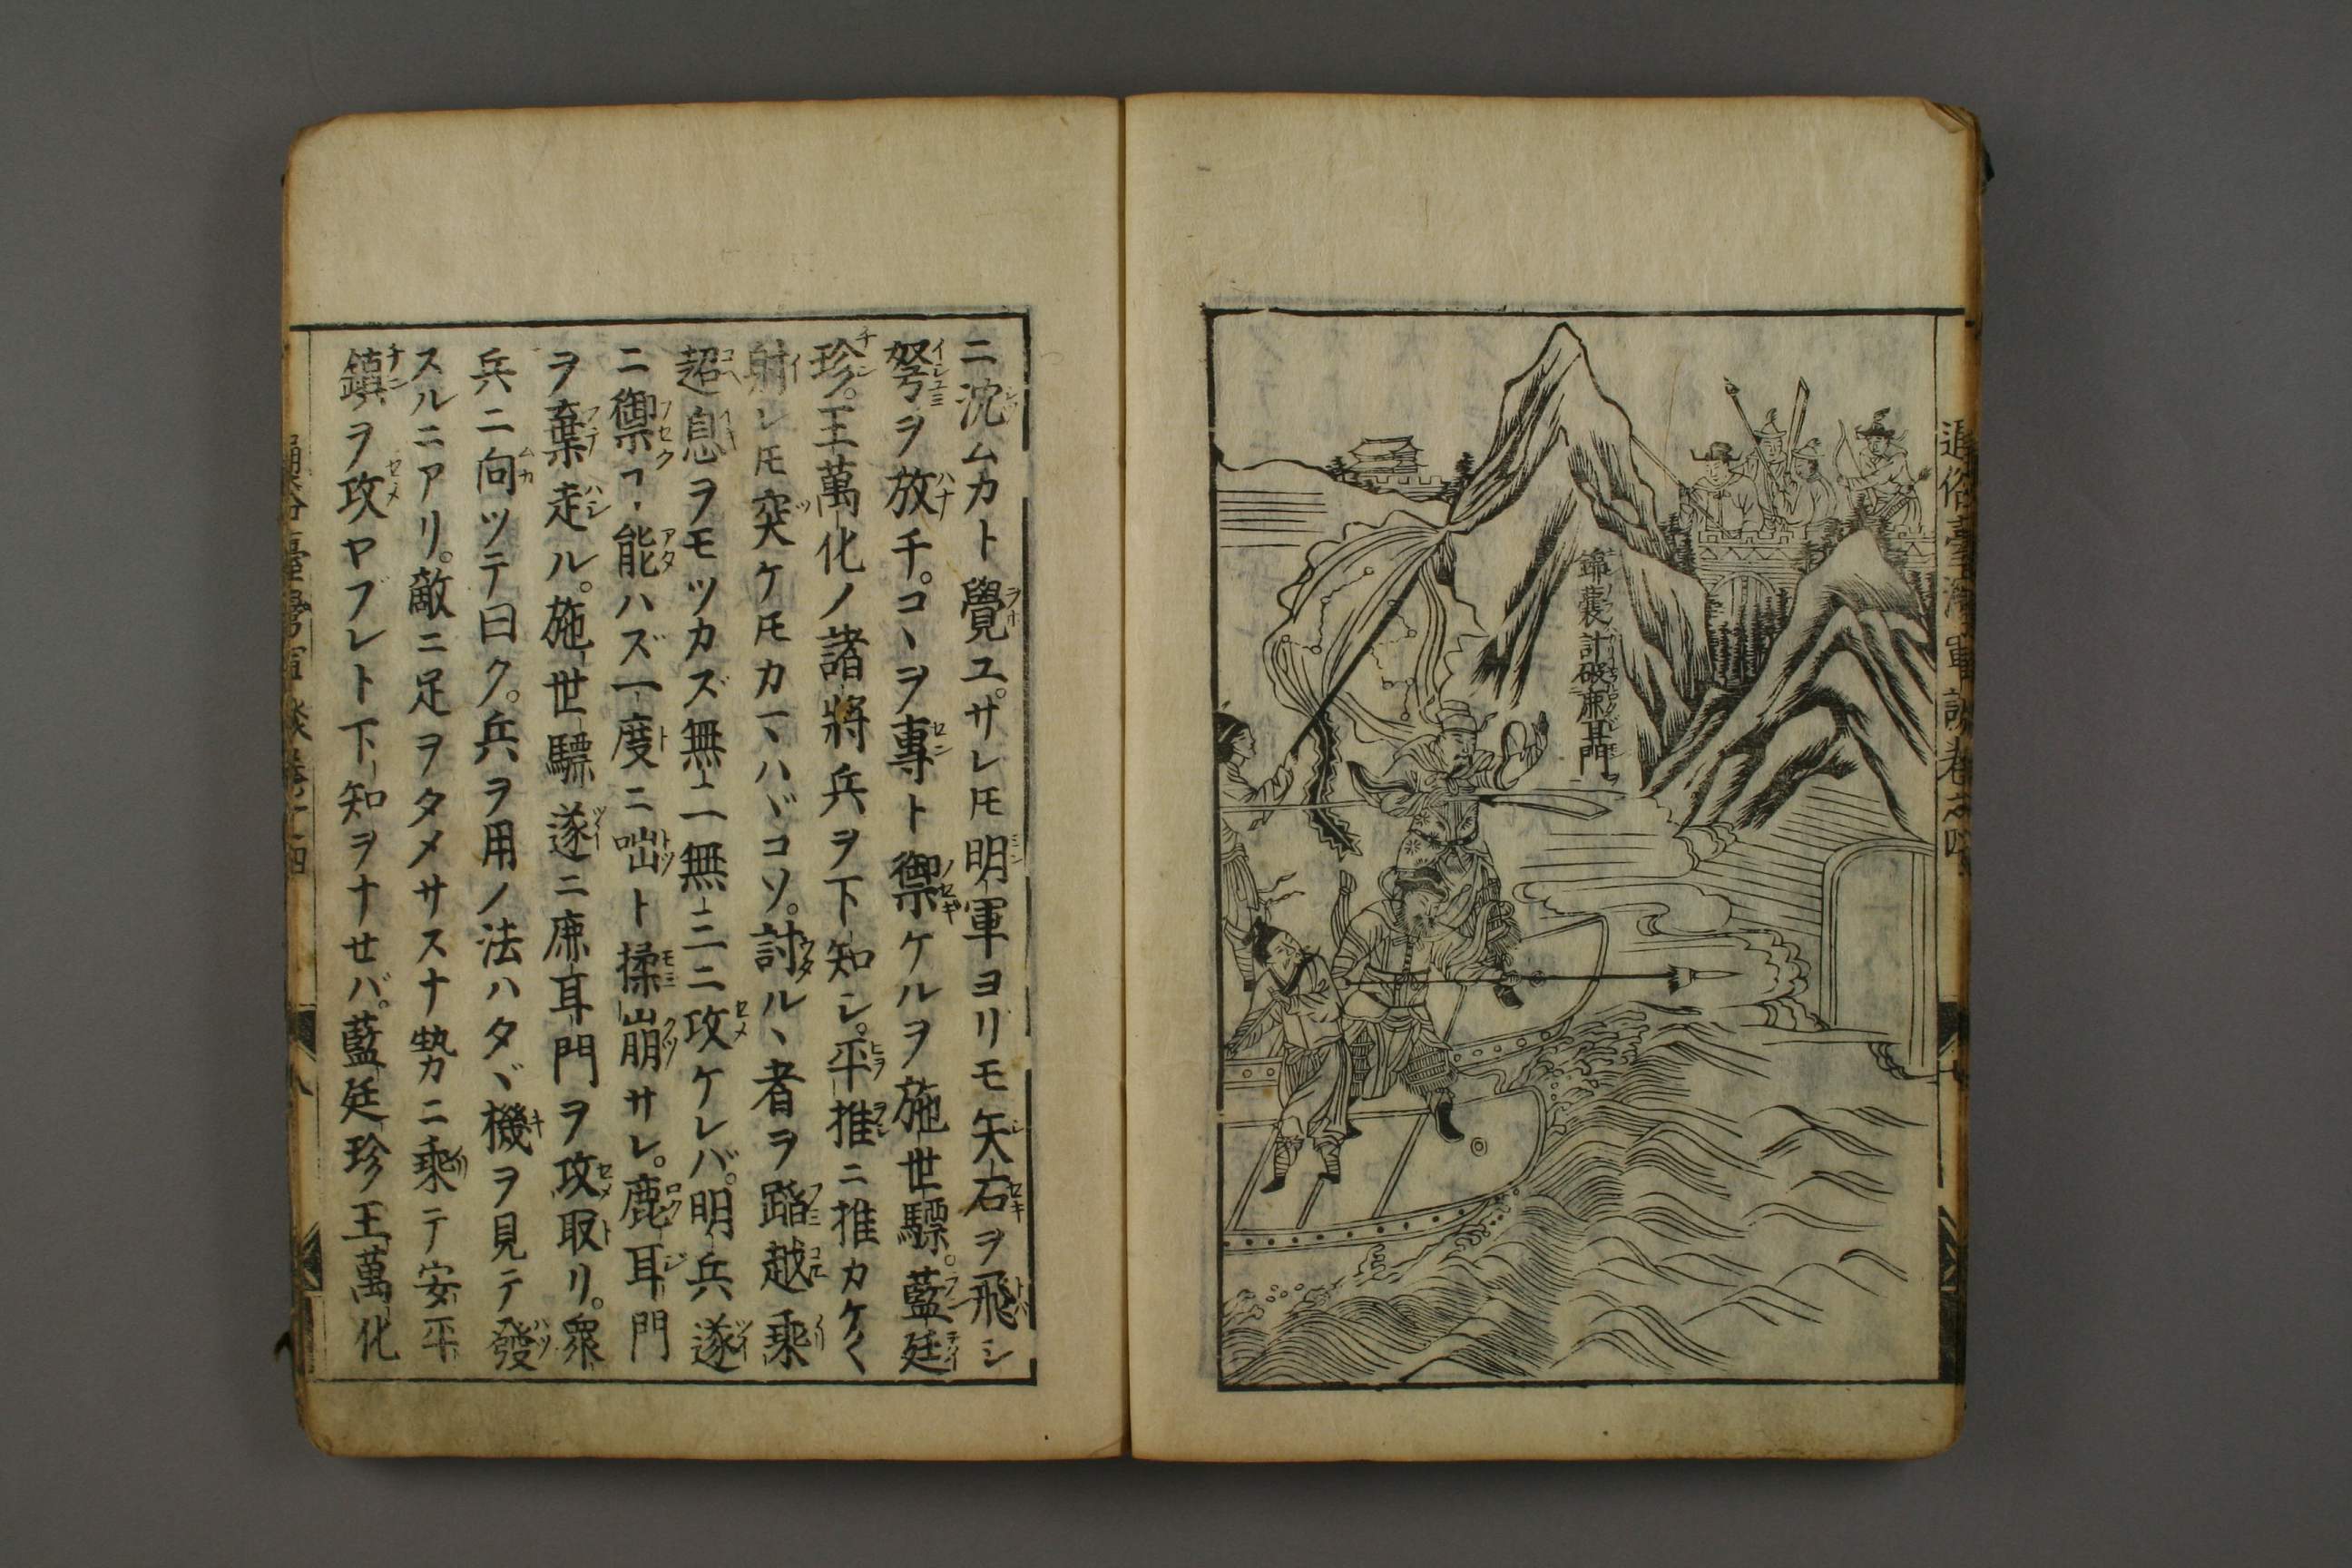 通俗臺灣軍談卷之四
錦囊計破鹿耳門
ニ沈ムカト覺ユ。サレ𪜈明軍ヨリモ矢石ヲ飛シ
弩ヲ放チ。コヽヲ專ト禦ケルヲ施世驃。藍廷
珍。王萬化ノ諸將兵ヲ下知シ。平推ニ推カケ〱
射レ𪜈突ケ𪜈カマハヾコソ。討ルヽ者ヲ蹈越乘
超息ヲモツカズ無二無三ニ攻ケレバ。明兵遂
ニ禦ヿ能ハズ一度ニ咄ト揉崩サレ。鹿耳門
ヲ棄走ル。施世驃遂ニ鹿耳門ヲ攻取リ。衆
兵ニ向ツテ曰ク。兵ヲ用ノ法ハタヾ機ヲ見テ發
スルニアリ。敵ニ足ヲタメサスナ勢ニ乘テ安平
鎮ヲ攻ヤブレト下知ヲナセバ。藍廷珍王萬化
通俗臺灣軍談卷之四
八